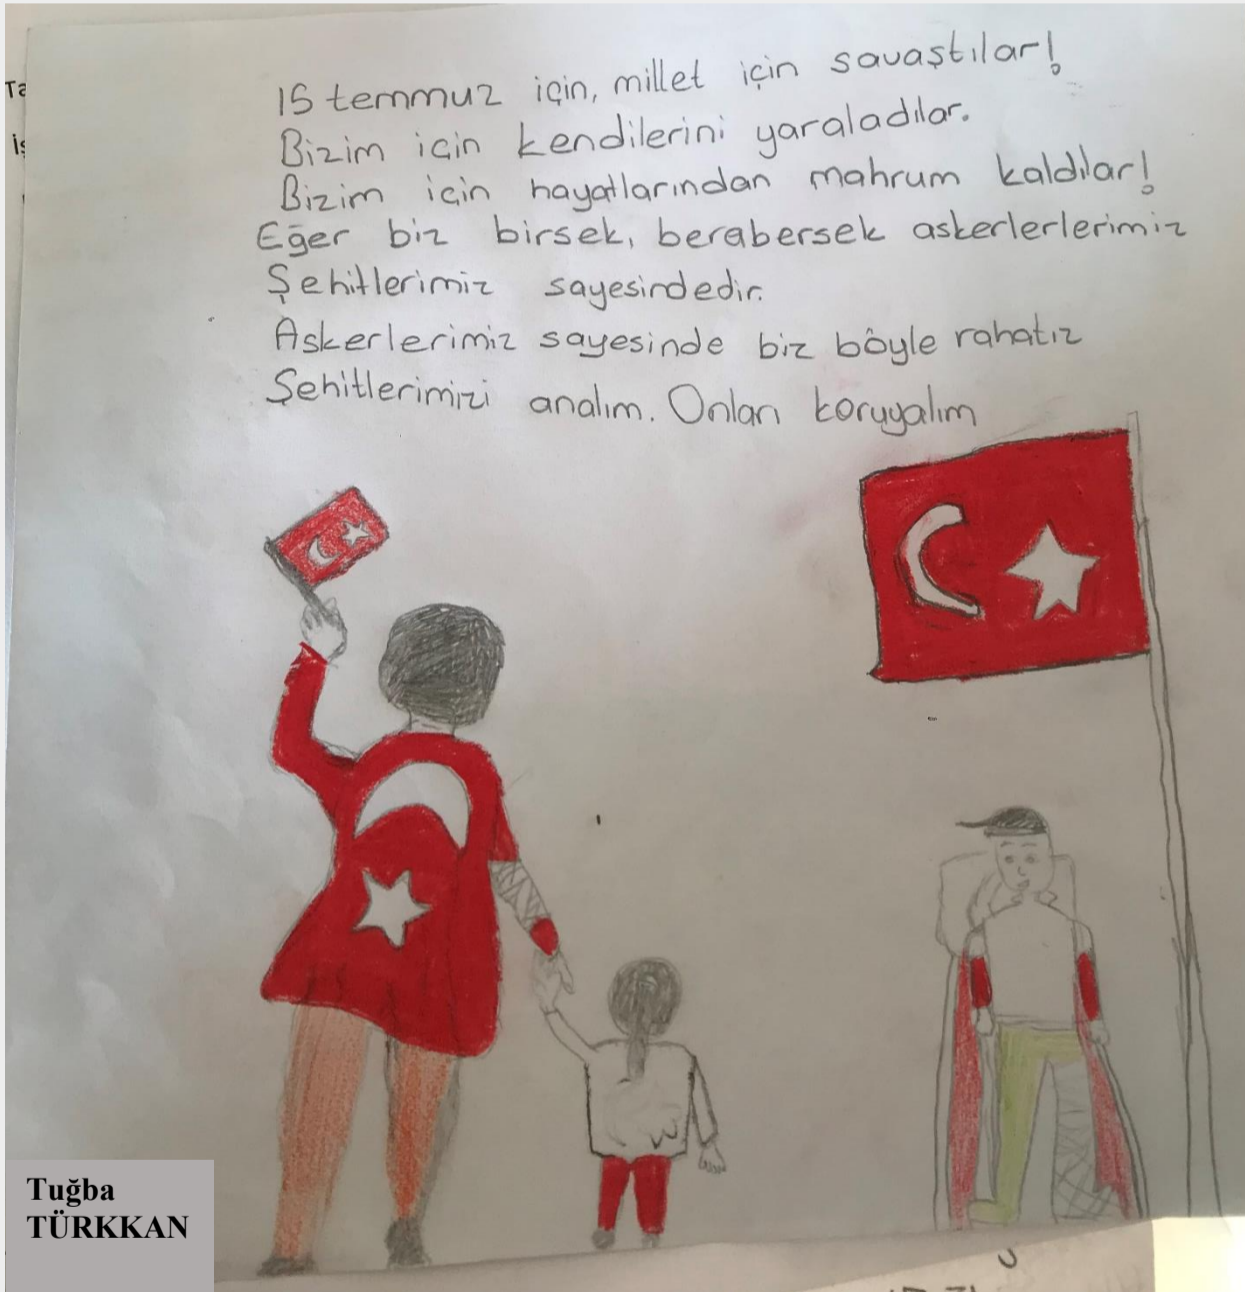 Ta
İş
15 temmuz için, millet için savaştılar!
Bizim için kendilerini yaraladılar.
Bizim için hayatlarından mahrum kaldılar!
Eğer biz birsek, berabersek askerlerlerimiz
Şehitlerimiz sayesindedir.
Askerlerimiz sayesinde biz böyle rahatız
Şehitlerimizi analım. Onları koruyalım
Tuğba
TÜRKKAN